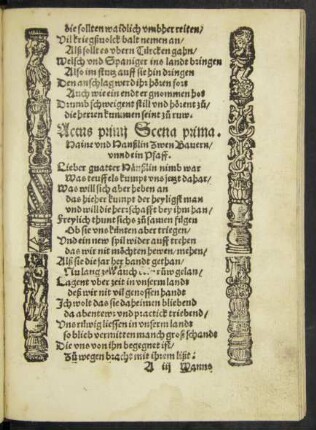 die sollten waidlich vmbher reiten/
Vil kriegsuolck balt nemen an/
Alß sollt es vbern Türcken gahn/
Welsch vnd Spanger ins lands bringen
Also im sturm auff sie hin dringen
Den anschlag werd ihr hören
Auch wie ein endt er gnommen hot
Drumb schweigent still vnd hörent zů/
die herren kummen seint zů růw.
Actus primi Scena prima.
Hainz vnd Hanßlin Zwen Bauern/
vnnd ein Pfaff.
Lieber guatter Hanßlin nimb war
Was teuffels kumpt vns jetzt dahar/
Was will sich aber heben an
das hieher kumpt der heyligst man
vnd will die herrschafft bey ihm han/
Freylich thunt sichs zůsamen fůgen
Ob sie vns künten aber triegen/
Vnd ein new spil wider auff trehen
das wir nit möchten hewen, mehen/
Alß sie die jar her handt gethan/
lang růw gelan/
Lagent vber zeit in vnserm lands
deß wir nit vil genossen hands
Ich wolt das sie daheimen bliebend
da abentewr vnd practick triebend/
Vns rüwig liessen in vnserm lands
so blieb vermitten manch groß schands
Die vns von ihn begegnet ist/
Zů wegen bracht mit ihrem list.
A iij Wanns